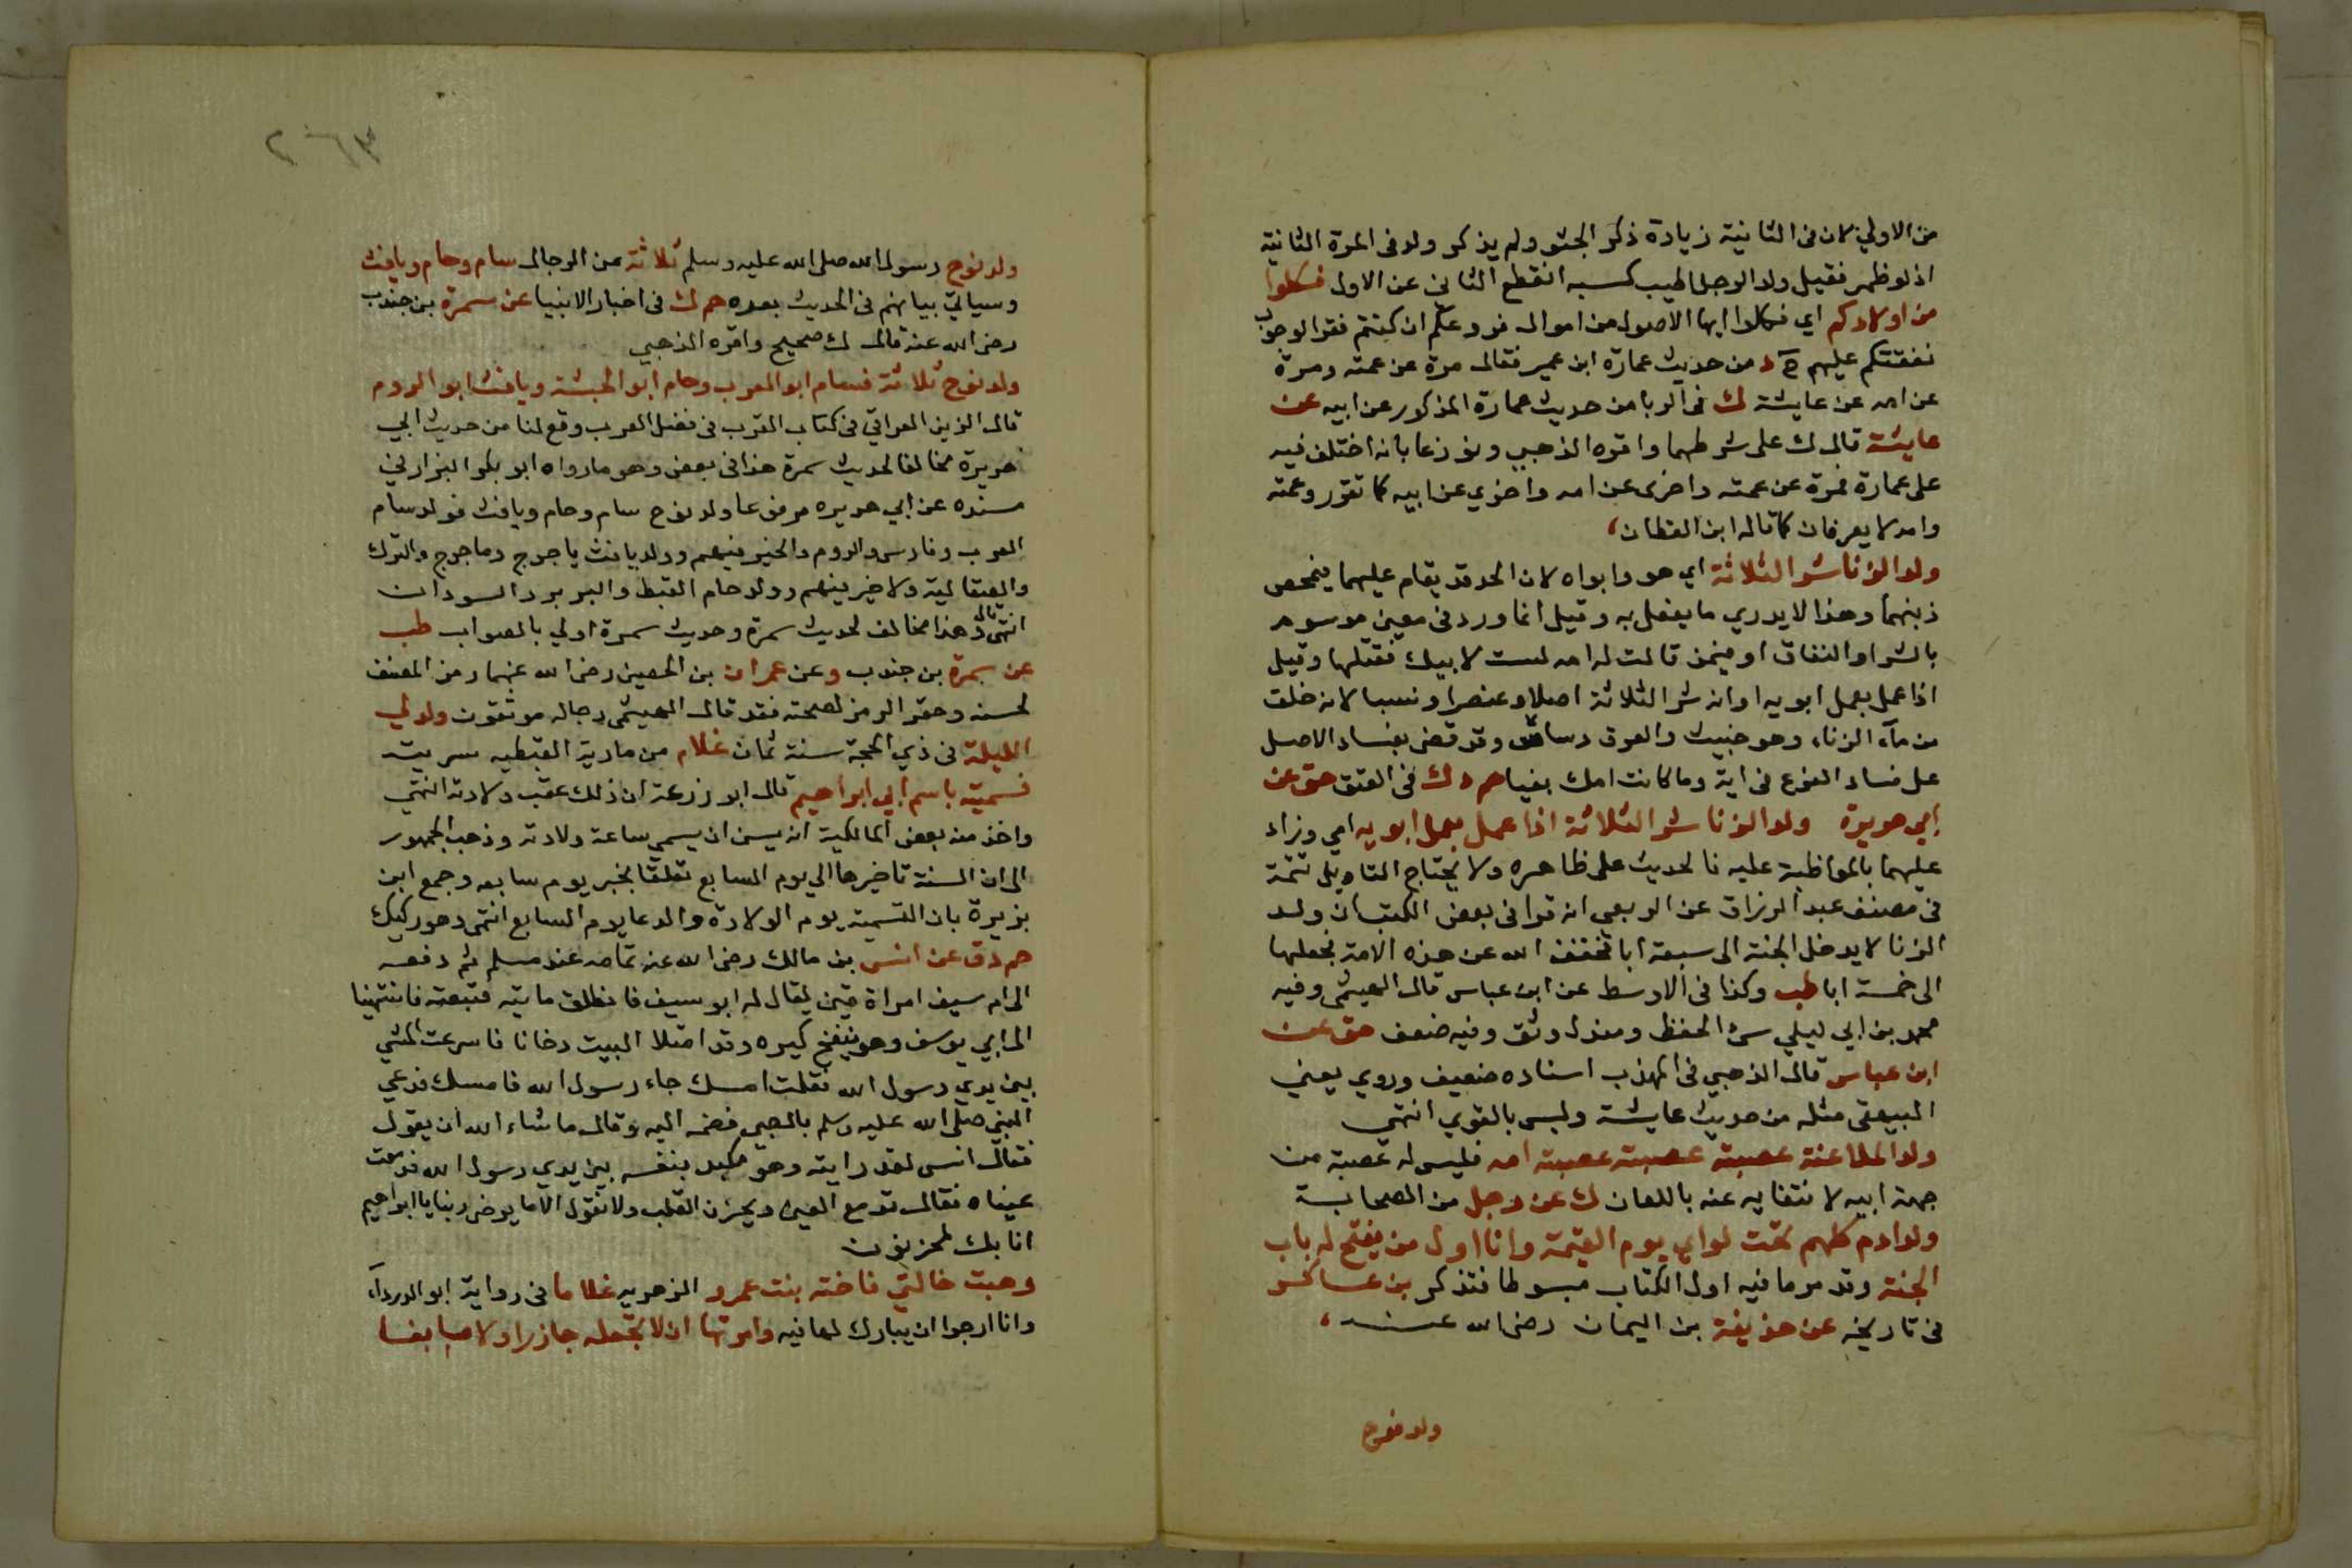 من الاولي لان في الثانية زيادة ذكر الحثو ولم يذكر ولد في المرة الثانية
اذ لو ظهر فقيل ولد الرجل اطيب كسبه انقطع الثاني عن الاول فكلوا
من اولادكم اي فكلوا ايها الاصول من اموال فروعكم ان كنتم فقرا لوجوب
نفقتكم عليهم د من حديث عمارة ابن عمير فقال مرة عن عمته ومرة
عن امه عن عايشة ك في الربا من حديث عمارة المذكور عن ابيه عن
عايشة قال ك على شرطهما واقره الذهبي ونوزعا بانه اختلف فيه
على عمارة فمرة عن عمته واخرى عن امه واخري عن ابيه كما تقرر وعمته
وامه لا يعرفان كما قاله ابن القطان
ولد الزنا شر الثلاثة اي هو وابواه لان الحد قد يقام عليهما يتمحص
ذبنهما وهذا لا يدري ما يفعل به وقيل انما ورد في معين موسوم
بالشر او النفاق او فيمن قالت له امه لست لابيك فقتلها وقيل
اذا عمل بعمل ابويه او انه شر الثلاثة اصلا وعنصرا ونسبا لانه خلق
من مآء الزناء وهو خبيث والعرق دساس وقد قضى بفساد الاصل
على فساد الفرع في اية وما كانت امك بغيا حم د ك في العتق هق عن
ابي هريرة ولد الزنا شر الثلاثة اذا عمل بعمل ابويه اي وزاد
عليهما بالمواظبة عليه فالحديث على ظاهره ولا يحتاج التاويل تتمة
في مصنف عبد الرزاق عن الربعي انه قرا في بعض الكتب ان ولد
الزنا لا يدخل الجنة الى سبعة ابا فخفف الله عن هذه الامة فجعلها
الى خمسة ابا طب وكذا في الاوسط عن ابن عباس قال الهيثمي وفيه
محمد بن ابي ليلي سئ الحفظ ومندل وثق وفيه ضعف هق عن
ابن عباس قال الذهبي في المهذب اسناده ضعيف وروي يعني
البيهقي مثله من حديث عايشة وليس بالقوي انتهي
ولد الملاعنة عصبته عصبته عصبته امه فليس له عصبة من
جهة ابيه لانتفايه عنه باللعان ك عن رجل من الصحابة
ولد ادم كلهم تحت لواي يوم القيمة وانا اول من يفتح له باب
الجنة وقد مر ما فيه اول الكتاب مبسوطا فتذكر بن عساكر
في تاريخه عن حذيفة بن اليمان رضي الله عنه
ولد نوح
٢٠٦٣
ولد نوح رسول الله صلى الله عليه وسلم ثلاثة من الرجال سام وحام ويافث
وسياتي بيانهم في الحديث بعده حم ك في اخبار الانبيا عن سمرة بن جندب
رضي الله عنه قال ك صحيح واقره الذهبي
ولد نوح ثلاثة فسام ابو العرب وحام ابو الحبشة ويافث ابو الروم
قال الزين العراقي في كتاب القرب في فضل العرب وقع لنا من حديث ابي
هريرة مخالفا لحديث سمرة هذا في بعض وهو ما رواه ابو بكر البزار في
مسنده عن ابي هريره مرفوعا ولد نوح سام وحام ويافث فولد سام
العرب وفارس والروم والخير فيهم وولد يافث ياجوج وماجوج والترك
والصقالبة ولا خير فيهم وولد حام القبط والبربر والسودان
انتهى قال وهذا مخالف لحديث سمرة وحديث سمرة اولي بالصواب طب
عن سمرة بن جندب وعن عمران بن الحصين رضي الله عنهما رمز المصنف
لحسنه وحقه الرمز لصحته فقد قال الهيثمي رجاله موثقون ولد لي
الليلة في ذي الحجة سنة ثمان غلام من مارية القبطيه سريته
فسميته باسم ابي ابراهيم قال ابو زرعة ان ذلك عقب ولادته انتهي
واخذ منه بعض المالكية انه يسن ان يسمى ساعة ولادته وذهب الجمهور
الى ان السنة تاخيرها الي يوم السابع تعلقا بخبر يوم سابعه وجمع ابن
بزيرة بان التسمية يوم الولادة والدعا يوم السابع انتهى وهو ركيك
حم د ق عن انس بن مالك رضي الله عنه تمامه عند مسلم ثم دفعه
الى ام سيف امراة قين يقال له ابو سيف فانطلق ماتيه فتبعته فانتهينا
الى ابي يوسف وهو ينفخ كيره وقد امتلا البيت دخانا فاسرعت المشي
بين يدي رسول الله فقلت امسك جاء رسول الله فامسك فدعي
النبي صلى الله عليه وسلم بالصبي فضمه اليه وقال ما شاء الله ان يقول
فقال انس لقد رايته وهو يكيد بنفسه بين يدي رسول الله فدمعت
عيناه فقال تدمع العين ويحزن القلب ولا نقول الا ما يرضى ربنا يا ابراهيم
انا بك لمحزنون
وهبت خالتي فاخته بنت عمرو الزهريه غلاما في رواية ابو الدرداء
وانا ارجوا ان يبارك لها فيه وامرتها ان لا تجعله جازرا ولا صايغا